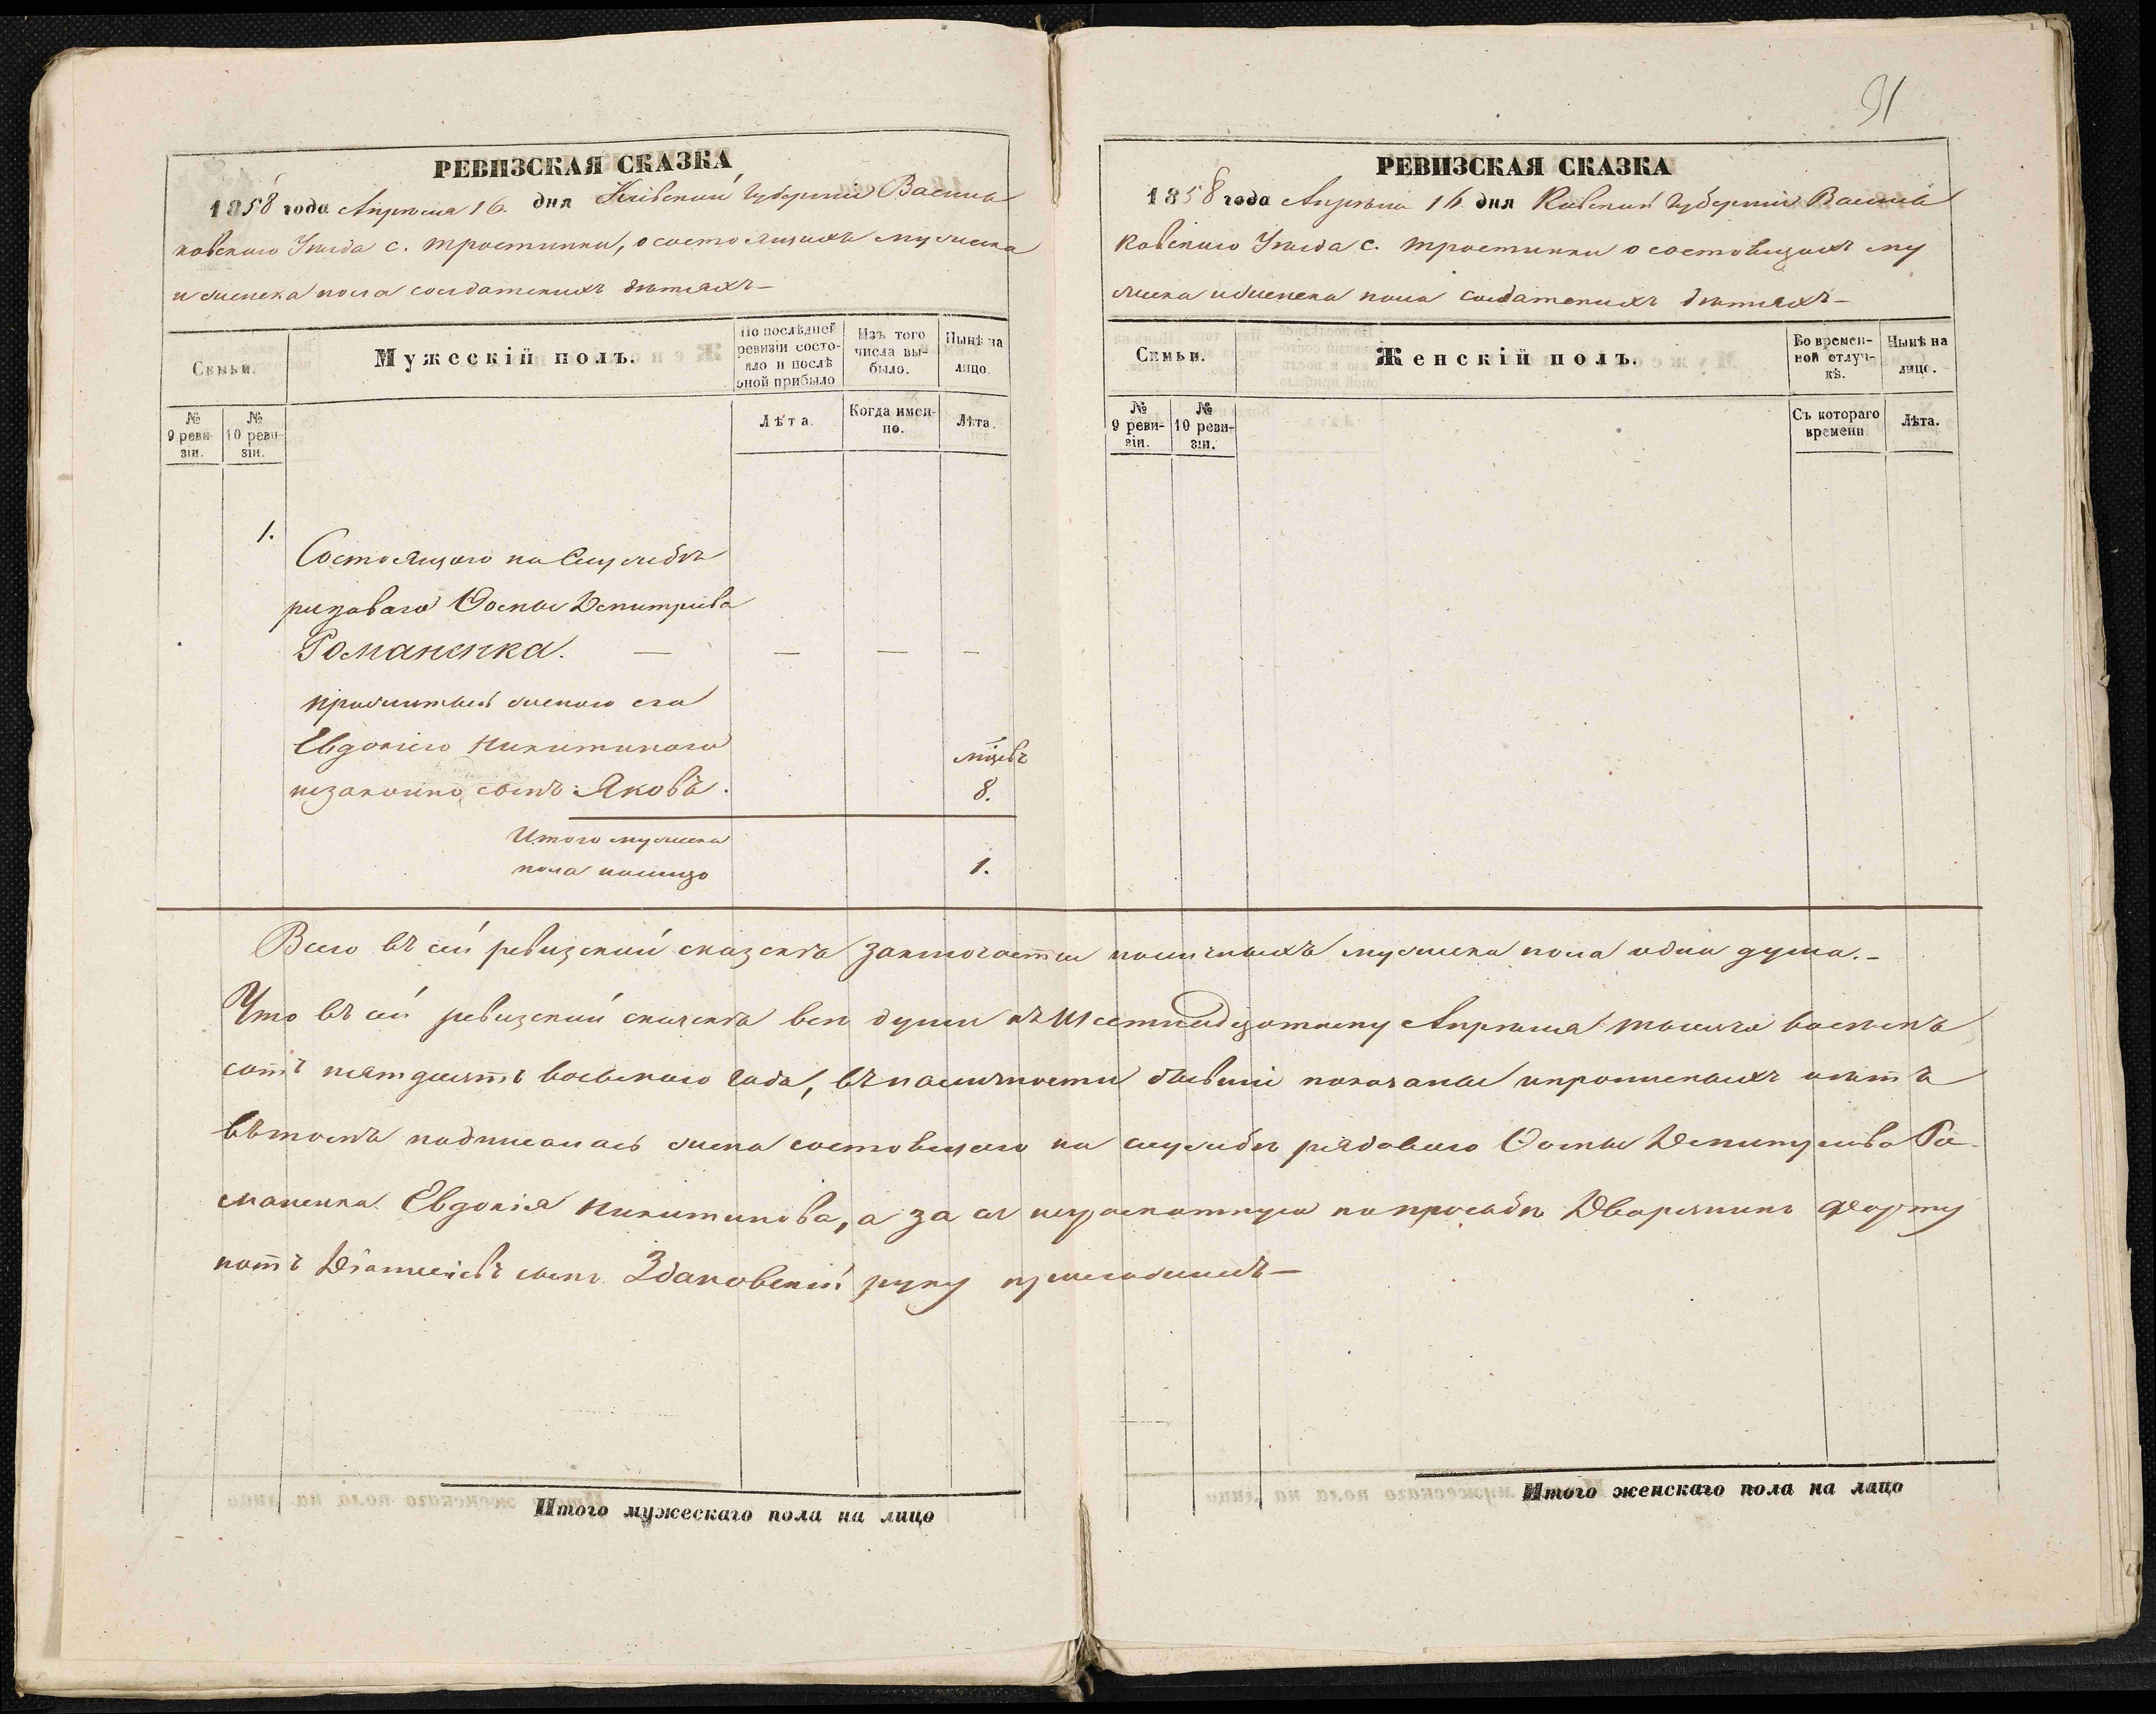 91
РЕВИЗСКАЯ СКАЗКА
1858 года Апрѣля 16. дня Кіевской Губерніи Василь
ковского Уѣзда с. Тростинки, о состоящихъ мужеска
и женска пола солдатскихъ дѣтяхъ—
Семьи.
Мужескій полъ.
По послѣдней ревизіи состояло и послѣ оной прибыло
Изъ того числа выбыло.
Нынѣ на лицо.
№ 9 ревизіи.
№ 10 ревизіи.
Лѣта.
Когда именно.
Лѣта.
1.
Состоящого на Службѣ
рядоваго Фомы Дмитріева
Романенка. — — — —
прижитый женою его
Евдокіею Никитиною
мцевъ
незаконно сынъ: Яковъ. 8.
Итого мужеска
пола налицо 1.
РЕВИЗСКАЯ СКАЗКА
1858 года Апрѣля 16 дня Кіевской Губерніи Василь
ковского Уѣзда с. Тростинки о состоящихъ му
жеска и женска пола солдатскихъ дѣтяхъ—
Семьи.
Женскій полъ.
Во временной отлучкѣ.
Нынѣ на лицо.
№ 9 ревизіи.
№ 10 ревизіи.
Съ котораго времени
Лѣта.
Всего въ сей ревизской сказскѣ заключается наличныхъ мужеска пола одна душа.—
Что въ сей ревизской сказскѣ всѣ души къ Апрѣля тысяча восемь
сотъ пятдесятъ восьмого года, въ наличности бывшіе показаны и
въ томъ подписалась жена состоящего на службѣ рядоваго Фомы Дмитріева Ро-
маненка Евдокія Никитинова, а за ее неграмотную по просьбѣ Дворянинъ Форту
натъ сынъ Здановскій руку приложилъ—
Итого мужескаго пола на лицо
Итого женскаго пола на лицо